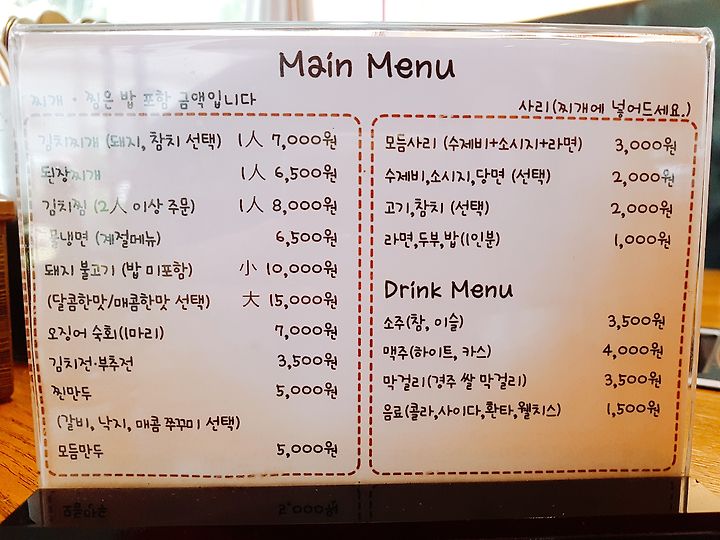 Main Menu
찌개 · 찜은 밥 포함 금액입니다
김치찌개 (돼지, 참치 선택) 1人 7,000원
된장찌개 1人 6,500원
김치찜 (2人 이상 주문) 1人 8,000원
물냉면 (계절메뉴) 6,500원
돼지 불고기 (밥 미포함) 小 10,000원
(달콤한맛/매콤한맛 선택) 大 15,000원
오징어 숙회(1마리) 7,000원
김치전·부추전 3,500원
찐만두 5,000원
(갈비, 낙지, 매콤 쭈꾸미 선택)
모듬만두 5,000원
사리(찌개에 넣어드세요.)
모듬사리 (수제비+소시지+라면) 3,000원
수제비,소시지,당면 (선택) 2,000원
고기,참치 (선택) 2,000원
라면,두부,밥(1인분) 1,000원
Drink Menu
소주(참, 이슬) 3,500원
맥주(하이트, 카스) 4,000원
막걸리(경주 쌀 막걸리) 3,500원
음료(콜라,사이다,환타,웰치스) 1,500원